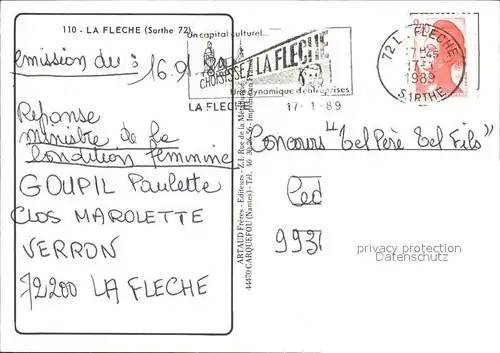 110 - LA FLECHE (Sarthe 72)
Un capital culturel...
CHOISISSEZ LA FLECHE
Une dynamique d'entreprises
LA FLECHE
17-1-89
72 LA FLECHE
17-1
1989
SARTHE
émission du : 16.1.89
Réponse
ministre de la
condition féminine
GOUPIL Paulette
CLOS MAROLETTE
VERRON
72200 LA FLECHE
ARTAUD Frères - Editeurs - Z.I. Rue de la
44470 CARQUEFOU (Nantes) - Tél. 40 30
Concours "Tel Père Tel Fils"
Ced
privacy protection
Datenschutz